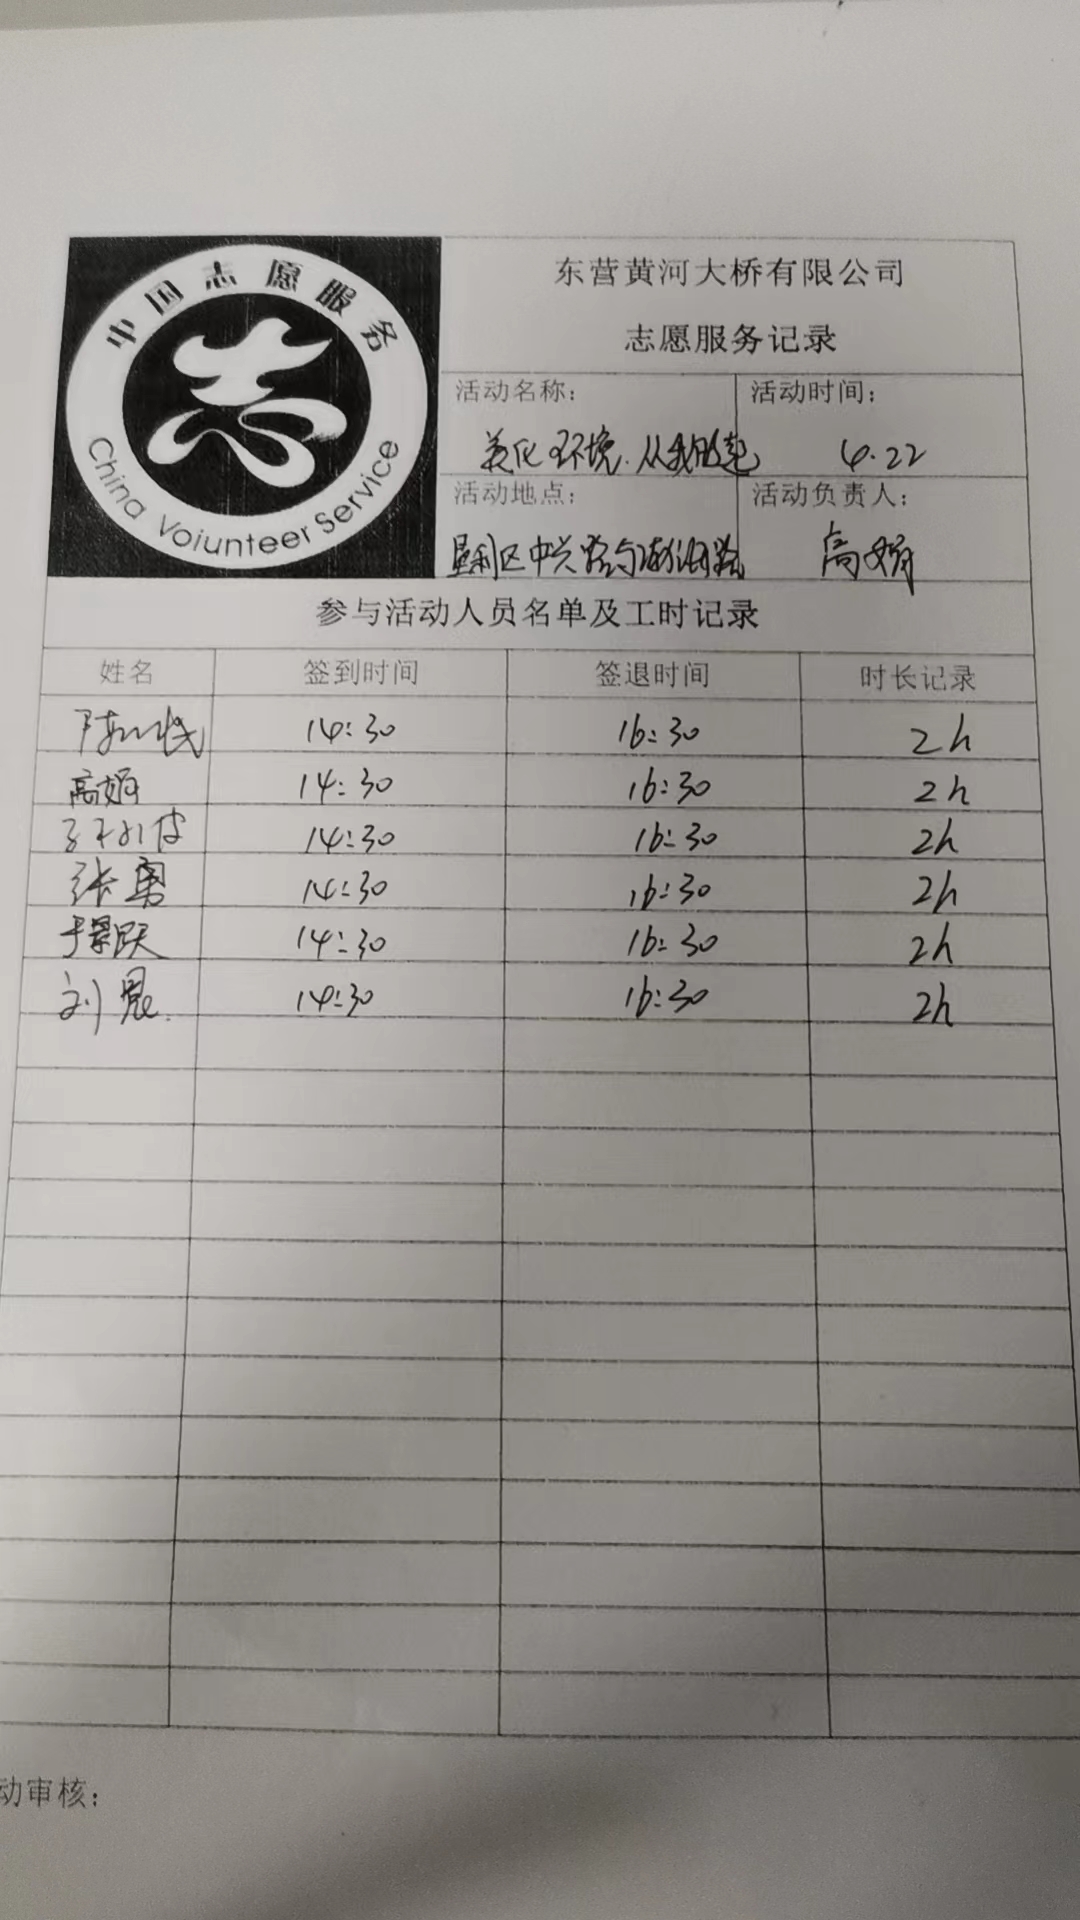 中国志愿服务
志
China Voiunteer Service
东营黄河大桥有限公司
志愿服务记录
活动名称： 活动时间：
美化环境.从我做起 4.22
活动地点： 活动负责人：
垦利区中兴路与 路 高娟
参与活动人员名单及工时记录
姓名 签到时间 签退时间 时长记录
14:30 16:30 2h
高娟 14:30 16:30 2h
14:30 16:30 2h
张勇 14:30 16:30 2h
于景跃 14:30 16:30 2h
刘晨. 14:30 16:30 2h
动审核：